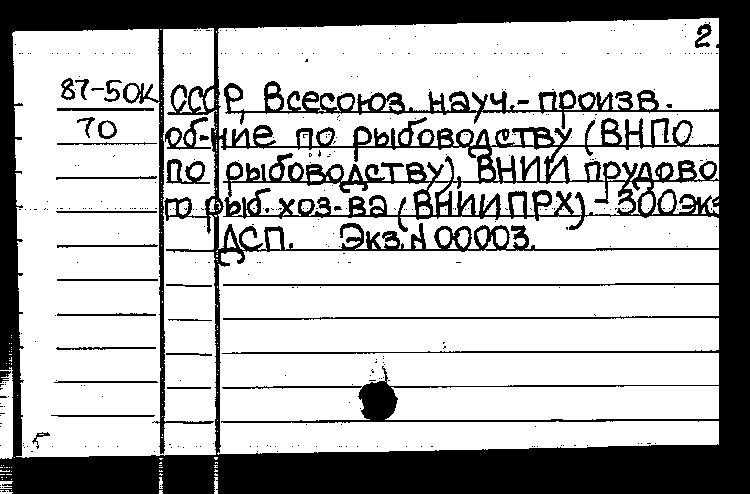 2.
87-50К СССР, Всесоюз. науч.-произв.
70 об-ние по рыбоводству (ВНПО
по рыбоводству), ВНИИ прудово
го рыб. хоз-ва (ВНИИПРХ).- 300экз
ДСП. Экз.N 00003.
5